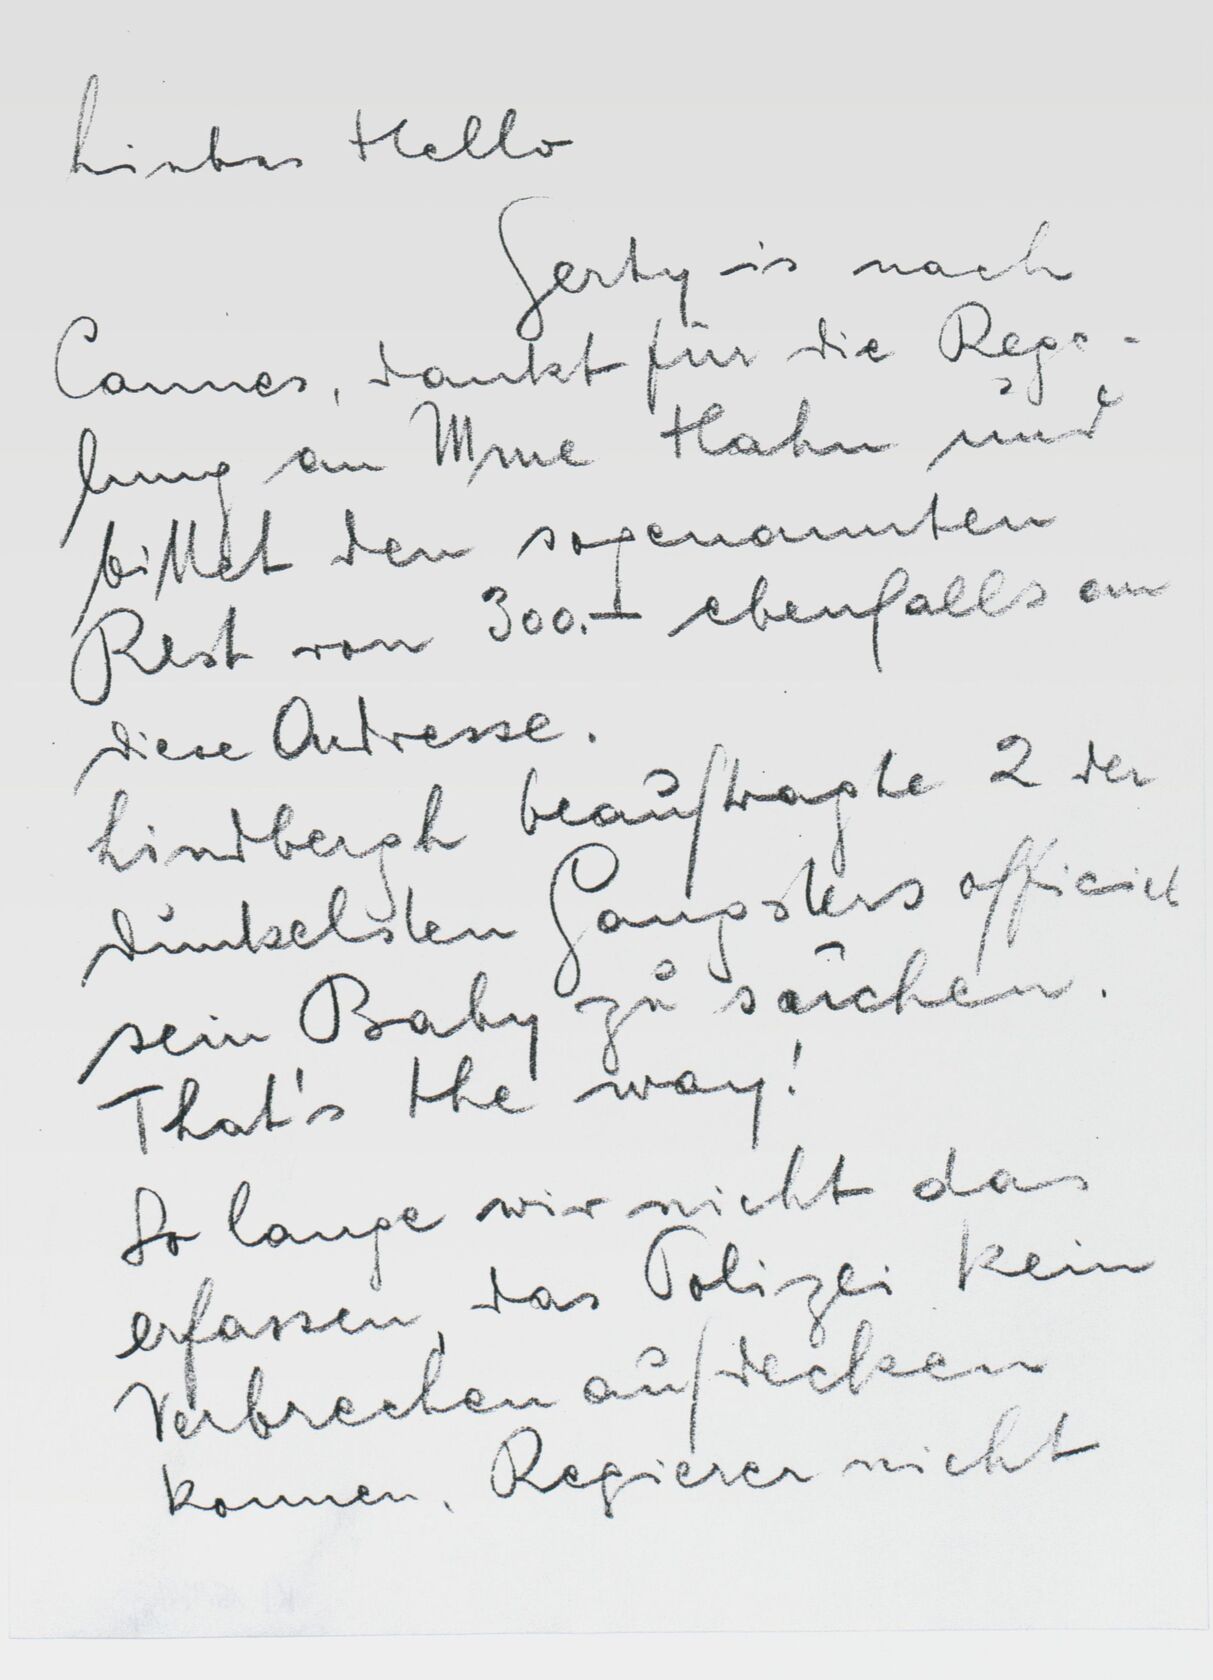 Liebes Hello
Gerty is nach
Cannes, dankt für die Rege-
lung an Mme Hahn und
bittet den sogenannten
Rest von 300.- ebenfalls an
diese Andresse.
Lindbergh beauftragte 2 der
dunkelsten Gangsters officiell
sein Baby zu suchen.
That's the way!
So lange wir nicht das
erfassen, das Polizei kein
Verbrechen aufdecken
konnen, Regierer nicht